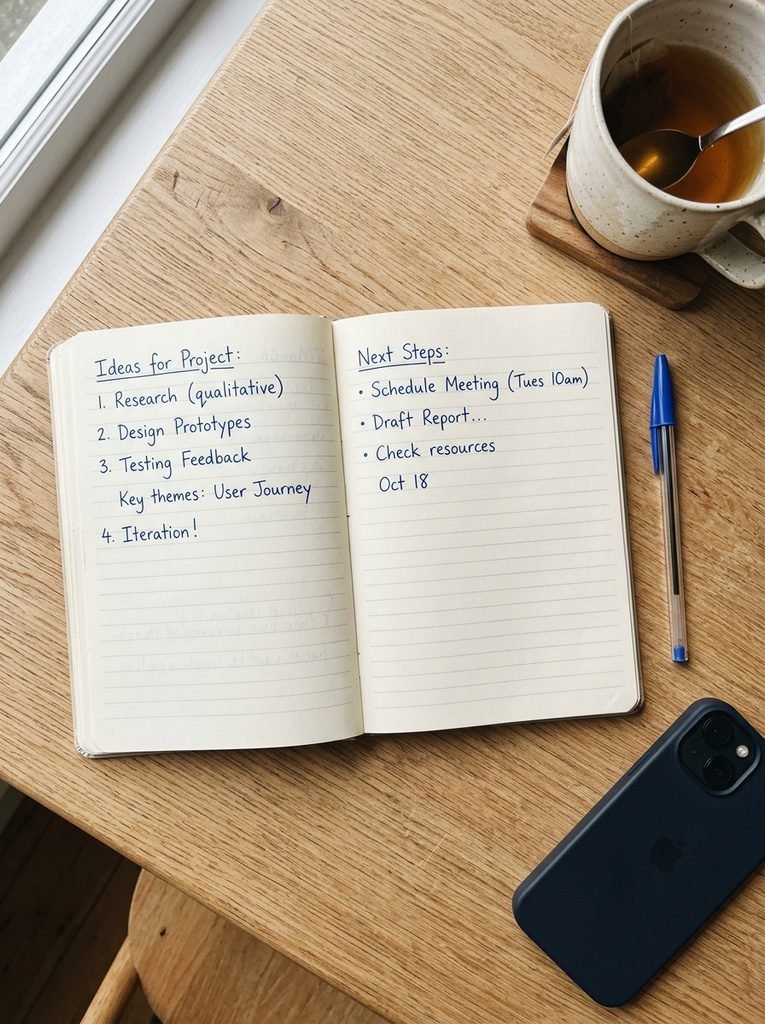 Ideas for Project:
1. Research (qualitative)
2. Design Prototypes
3. Testing Feedback
Key themes: User Journey
4. Iteration!
Next Steps:
• Schedule Meeting (Tues 10am)
• Draft Report...
• Check resources
Oct 18